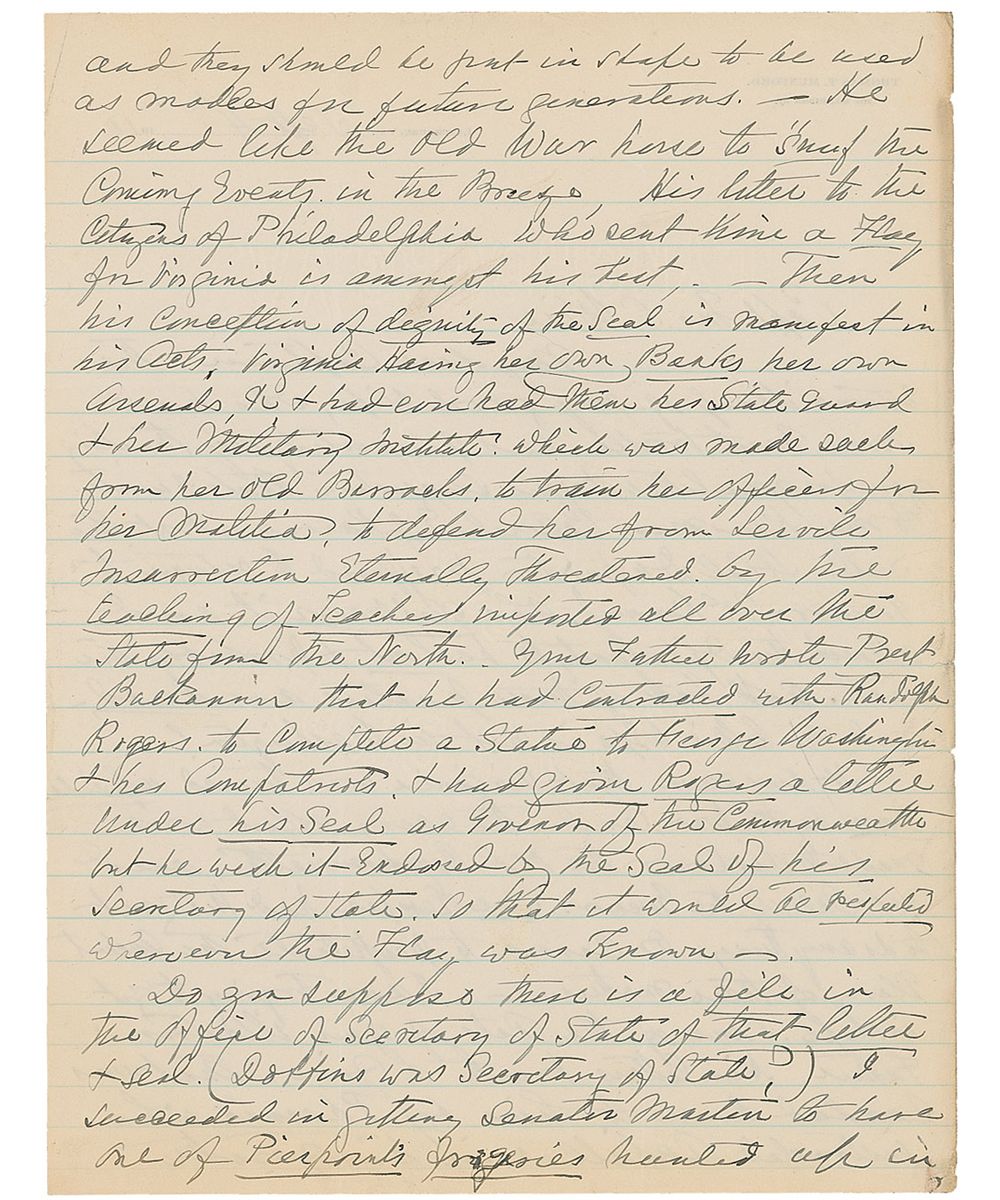 and they should be put in shape to be used
as modles for future generations. — He
seemed like the Old War horse to "snuf the
Coming Events. in the Breeze, His letter to the
Citizens of Philadelphia who sent him a Flag
for Virginia is amongst his best, — Then
his Conception of dignity of the Seal is manifest in
his Acts, Virginia Having her own Banks her own
Arsenals, & & had her State Guard
& her Military Institute. which was made such
from her old Barracks. to train her officers for
her Malitia, to defend her from Servile
Insurrection Eternally Threatened. by the
teaching of Teachers imported all over the
State from the North. Your Father wrote Prest
Buckannin that he had Contracted with Randolph
Rogers. to Complete a Statue to George Washington
& his Compatriots. & had given Rogers a letter
Under his Seal as Govenor of the Commonwealth
but he wish it Endorsed by the Seal of his
Secretary of State. So that it would be respected
wherever the Flag was Known —.
Do you suppose there is a file in
the Office of Secretary of State of that letter
& seal. (Dobbins was Secretary of State?) I
succeeded in getting Senator Martin to have
one of Pierpoint's forgeries hunted up in